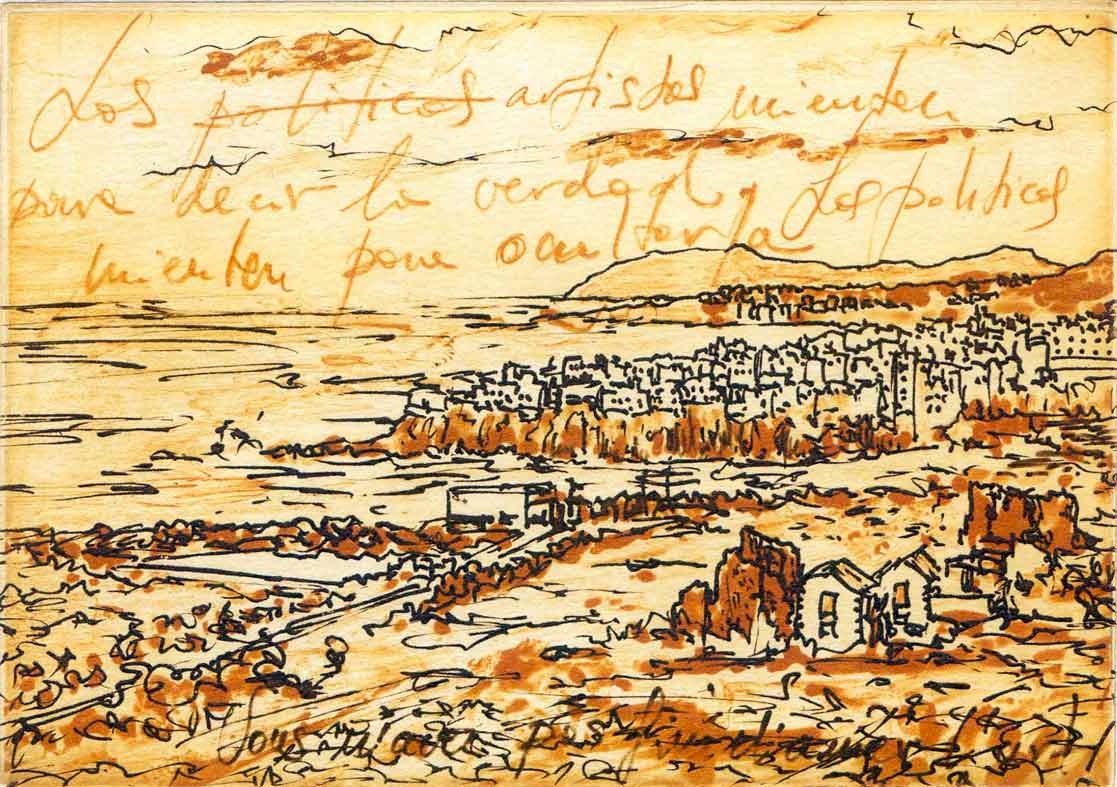 Los politicos artistas mienten
para decir la verdad, Los politicos
mienten para ocultarla
Vous n'avez pas fini d'aimer